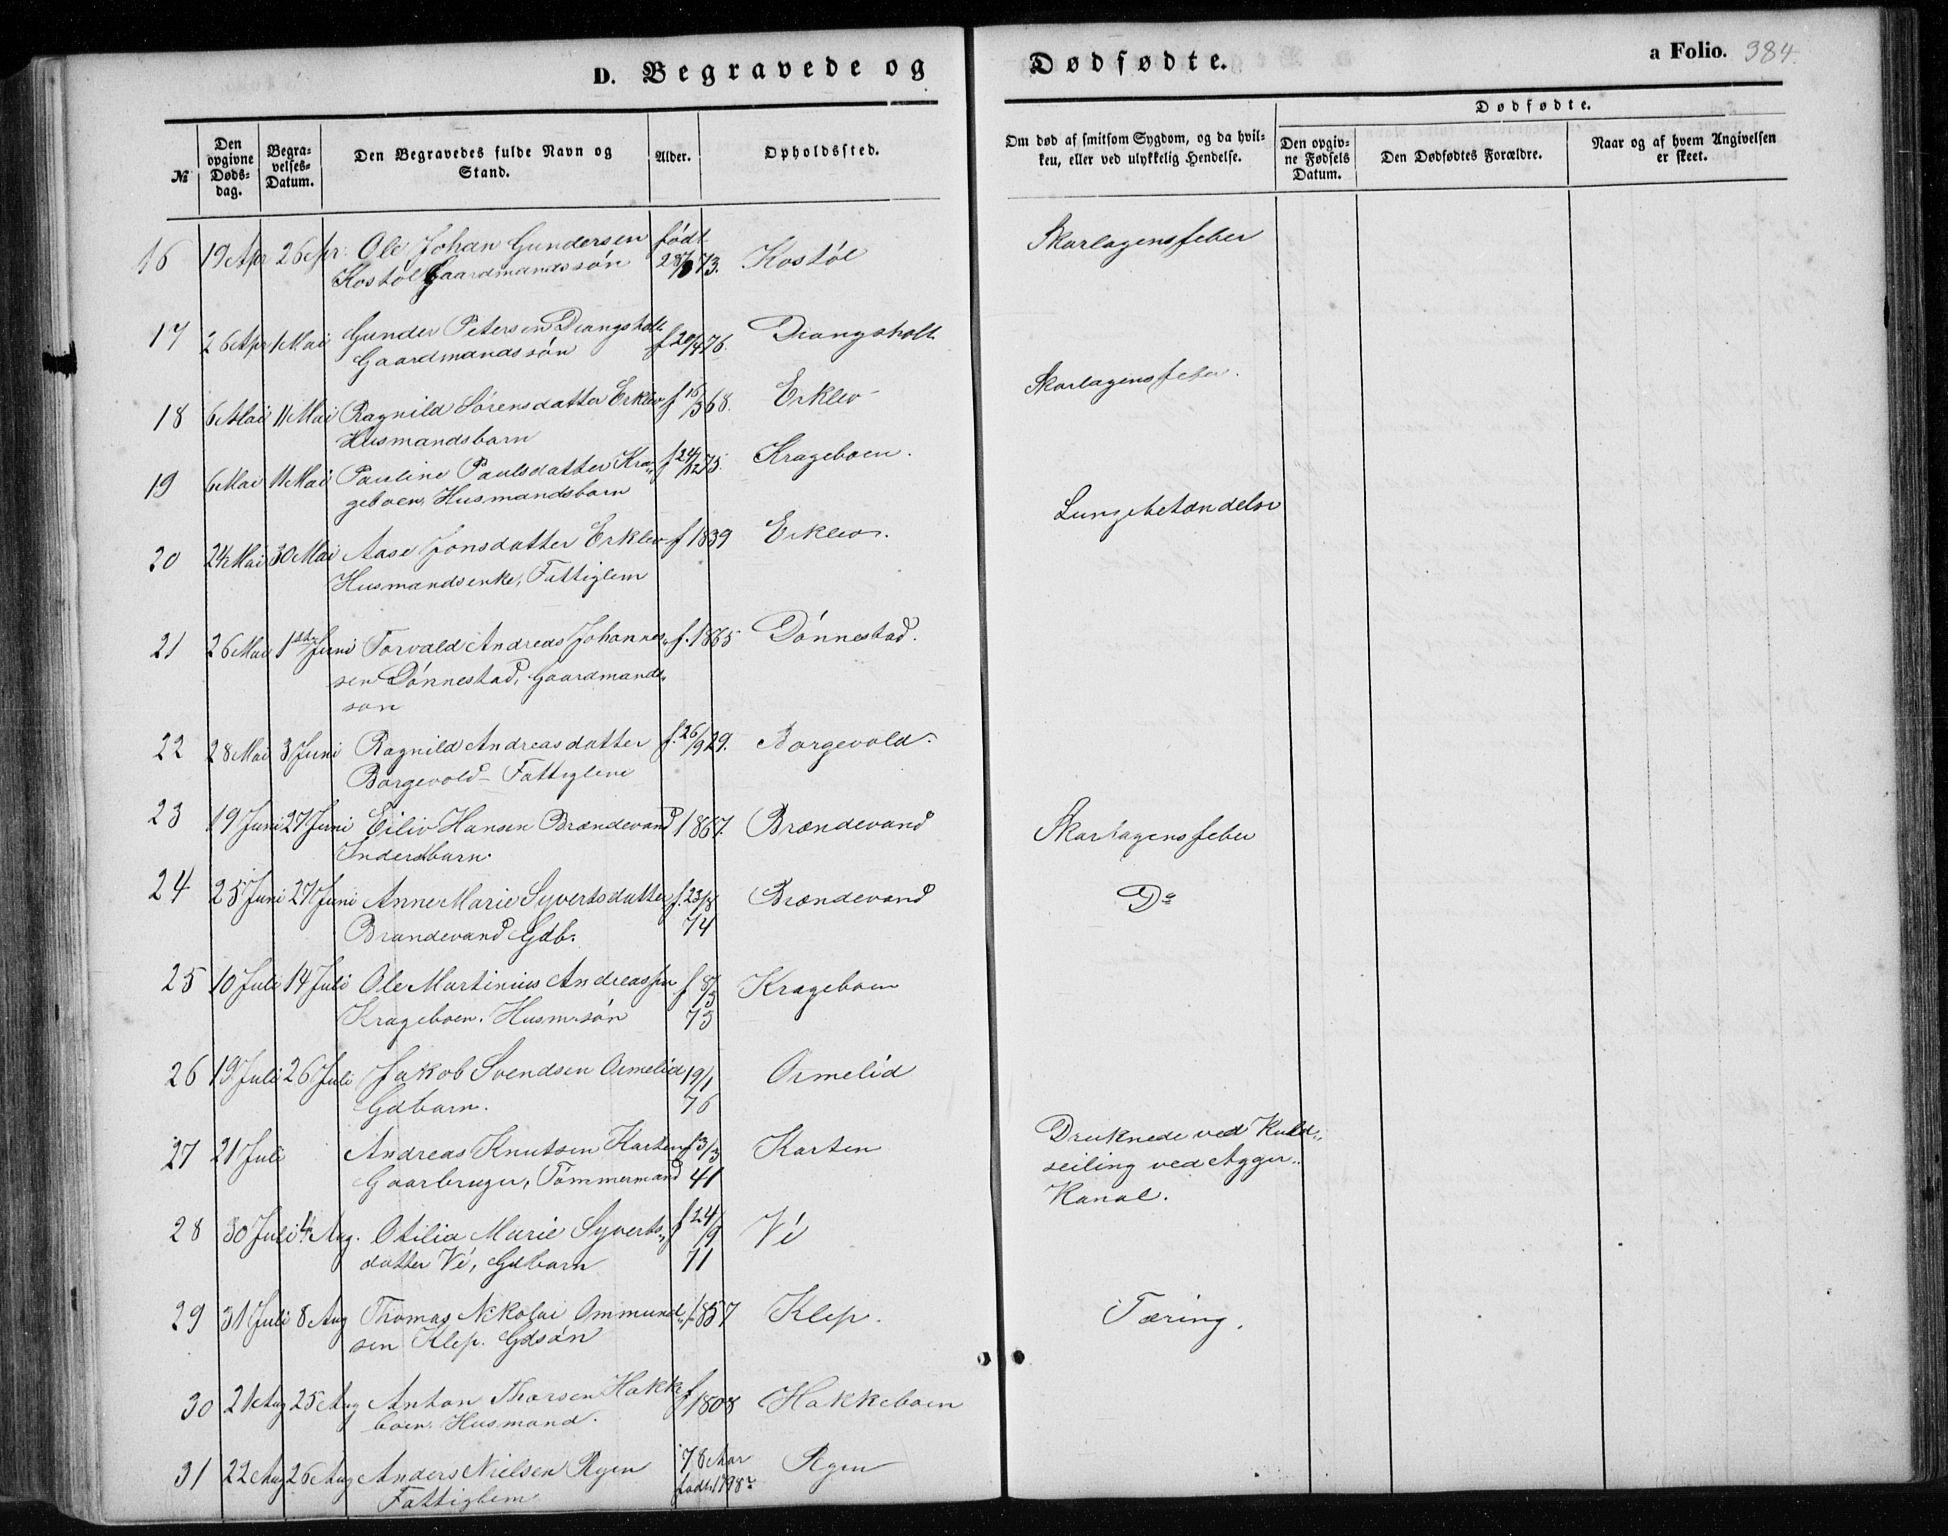 D. Begravede og Dødfødte.
a Folio. 384.
№
Den opgivne Døds-dag.
Begra-velses-Datum.
Den Begravedes fulde Navn og Stand.
Alder.
Opholdssted.
Om død af smitsom Sygdom, og da hvil-ken, eller ved ulykkelig Hendelse.
Dødfødte.
Den opgiv-ne Fødsels Datum.
Den Dødfødtes Forældre.
Naar og af hvem Angivelsen er skeet.
16 19 Apr 26 Apr. Ole Johan Gundersen født Kostøl Skarlagensfeber
Kostøl Gaardmandssøn 73.
17 26 Apr 1 Mai Gunder Petersen Drangsholt f 20/4 76. Drangsholt
Gaardmandssøn
18 6 Mai 11 Mai Ragnild Sørensdatter Erklev f 16/3 68. Erklev Skarlagensfeber.
Husmandsbarn
19 6 Mai 11 Mai Pauline Paulsdatter Kra- f 24/12 75. Krageboen.
geboen, Husmandsbarn
20 24 Mai 30 Mai Aase Jonsdatter Erklev f 1839 Erklev. Lungebetændelse
Husmandsenke, Fattiglem
21 26 Mai 1ste Juni Torvald Andreas Johannes- f. 1865 Dønnestad.
sen Dønnestad, Gaardmands-
søn
22 28 Mai 3 Juni Ragnild Andreasdatter f. 26/9 29. Borgevold.
Borgevold - Fattiglem
23 19 Juni 27 Juni Eiliv Hansen Brændevand 1867. Brændevand Skarlagensfeber
Inderstbarn.
24 25 Juni 27 Juni Anne Marie Syvertsdatter f. 23/8 Brændevand Do
Brændevand Gdb. 74
25 10 Juli 14 Juli Ole Martinius Andreassen f 8/5 Krageboen
Krageboen. Husm.søn 75
26 19 Juli 26 Juli Jakob Svendsen Ormelid 19/1 Ormelid
Gdbarn. 76
27 21 Juli Andreas Knutsen Karten f 3/3 Karten Druknede ved Kuld-
Gaarbruger, Tømmermand 41 seiling ved Agger-
Kanal.
28 30 Juli 4 Aug. Otilia Marie Syverts- f 24/9 Vé
datter Vé, Gdbarn 71
29 31 Juli 8 Aug Thomas Nikolai Ommund- f. 1857 Klep. Tæring.
sen Klep. Gdsøn
30 21 Aug 25 Aug Anton Thorsen Hakke f 1808 Hakkeboen
boen. Husmand.
31 22 Aug 26 Aug Anders Nielsen Rygen 78 Aar
Fattiglem født 1798